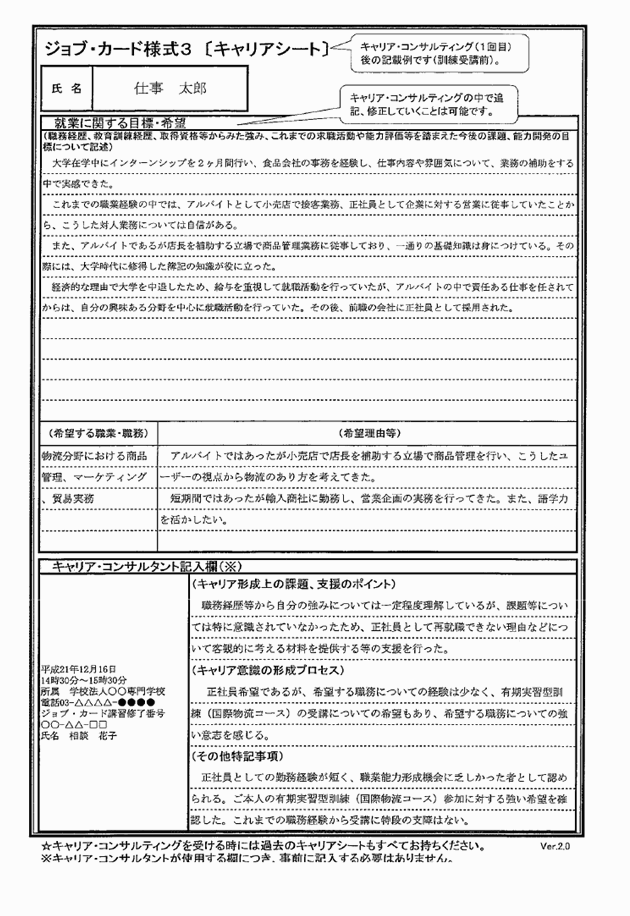 ジョブ・カード様式3 〔キャリアシート〕
キャリア・コンサルティング(1回目)
後の記載例です(訓練受講前)。
氏 名
仕事 太郎
キャリア・コンサルティングの中で追
記、修正していくことは可能です。
就業に関する目標・希望
(職務経歴、教育訓練経歴、取得資格等からみた強み、これまでの求職活動や能力評価等を踏まえた今後の課題、能力開発の目
標について記述)
大学在学中にインターンシップを2ヶ月間行い、食品会社の事務を経験し、仕事内容や雰囲気について、業務の補助をする
中で実感できた。
これまでの職業経験の中では、アルバイトとして小売店で接客業務、正社員として企業に対する営業に従事していたことか
ら、こうした対人業務については自信がある。
また、アルバイトであるが店長を補助する立場で商品管理業務に従事しており、一通りの基礎知識は身につけている。その
際には、大学時代に修得した簿記の知識が役に立った。
経済的な理由で大学を中退したため、給与を重視して就職活動を行っていたが、アルバイトの中で責任ある仕事を任されて
からは、自分の興味ある分野を中心に就職活動を行っていた。その後、前職の会社に正社員として採用された。
(希望する職業・職務)
(希望理由等)
物流分野における商品
管理、マーケティング
、貿易実務
アルバイトではあったが小売店で店長を補助する立場で商品管理を行い、こうしたユ
ーザーの視点から物流のあり方を考えてきた。
短期間ではあったが輸入商社に勤務し、営業企画の実務を行ってきた。また、語学力
を活かしたい。
キャリア・コンサルタント記入欄(※)
平成21年12月16日
14時30分~15時30分
所属 学校法人○○専門学校
電話03-△△△△-●●●●
ジョブ・カード講習修了番号
○○-△△-□□
氏名 相談 花子
(キャリア形成上の課題、支援のポイント)
職務経歴等から自分の強みについては一定程度理解しているが、課題等につい
ては特に意識されていなかったため、正社員として再就職できない理由などにつ
いて客観的に考える材料を提供する等の支援を行った。
(キャリア意識の形成プロセス)
正社員希望であるが、希望する職務についての経験は少なく、有期実習型訓
練(国際物流コース)の受講についての希望もあり、希望する職務についての強
い意志を感じる。
(その他特記事項)
正社員としての勤務経験が短く、職業能力形成機会に乏しかった者として認め
られる。ご本人の有期実習型訓練(国際物流コース)参加に対する強い希望を確
認した。これまでの職務経験から受講に特段の支障はない。
☆キャリア・コンサルティングを受ける時には過去のキャリアシートもすべてお持ちください。
Ver.2.0
※キャリア・コンサルタントが使用する欄につき、事前に記入する必要はありません。